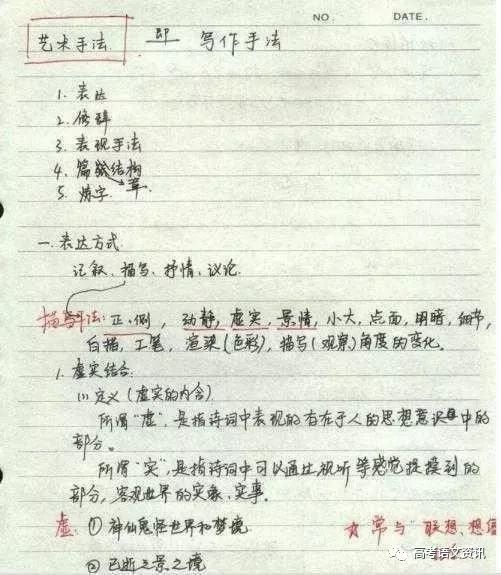 NO. DATE.
艺术手法 即 写作手法
1. 表达
2. 修辞
3. 表现手法
4. 篇章结构
5. 炼字
一. 表达方式
记叙、描写、抒情、议论.
描写手法:正、侧,动静,虚实,景情,小大,点面,明暗,细节,
白描,工笔,渲染(色彩),描写(观察)角度的变化.
1. 虚实结合:
(1) 定义(虚实的内含)
所谓“虚”,是指诗词中表现的存在于人的思想意识中的
部分。
所谓“实”,是指诗词中可以通过视听等感觉捉摸到的
部分,客观世界的实象、实事.
虚:①神仙鬼怪世界和梦境 常与“联想、想像
②已逝之景之境
高考语文资讯